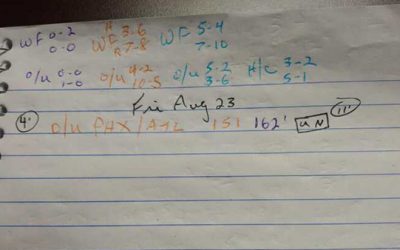 WF 0-2 H 3-6 WF 5-4
0-0 R 7-8 7-10
O/U 0-0 O/U 4-2 O/U 5-2 H/C 3-2
1-0 10-5 3-6 5-1
Fri Aug 23
4' O/U PHX/ATL 151 162' UN 11'